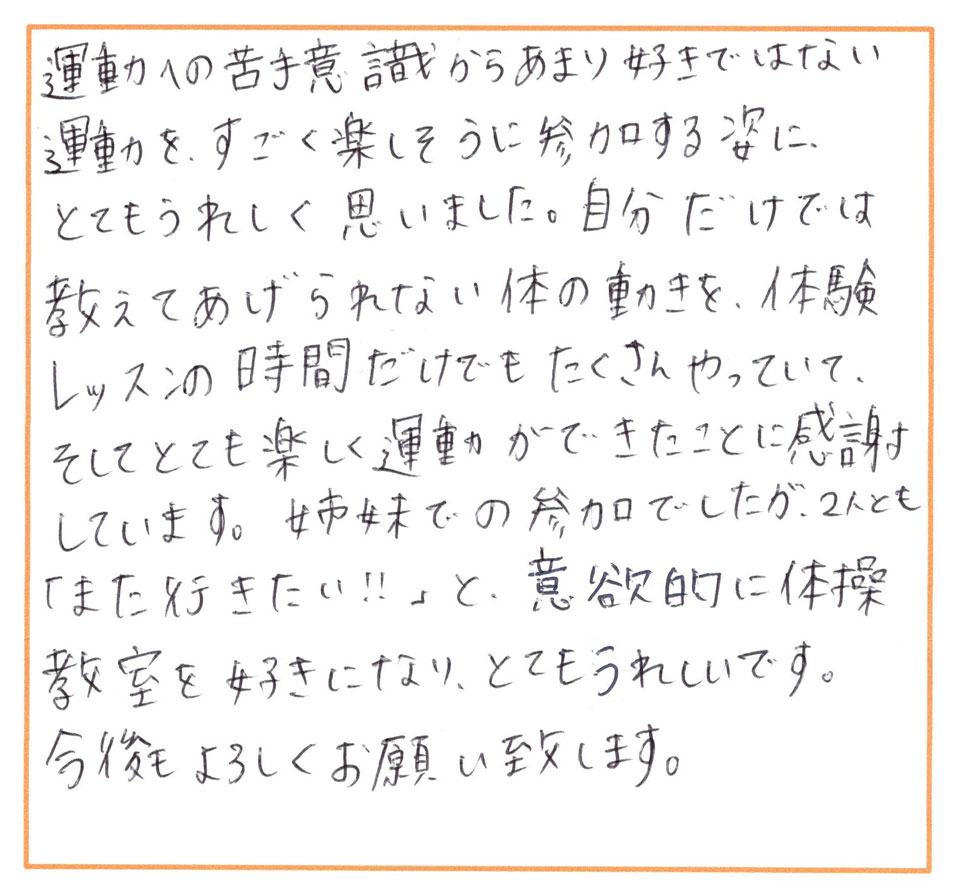 運動への苦手意識からあまり好きではない
運動を、すごく楽しそうに参加する姿に、
とてもうれしく思いました。自分だけでは
教えてあげられない体の動きを、体験
レッスンの時間だけでもたくさんやっていて、
そしてとても楽しく運動ができたことに感謝
しています。姉妹での参加でしたが、2人とも
「また行きたい!!」と、意欲的に体操
教室を好きになり、とてもうれしいです。
今後もよろしくお願い致します。